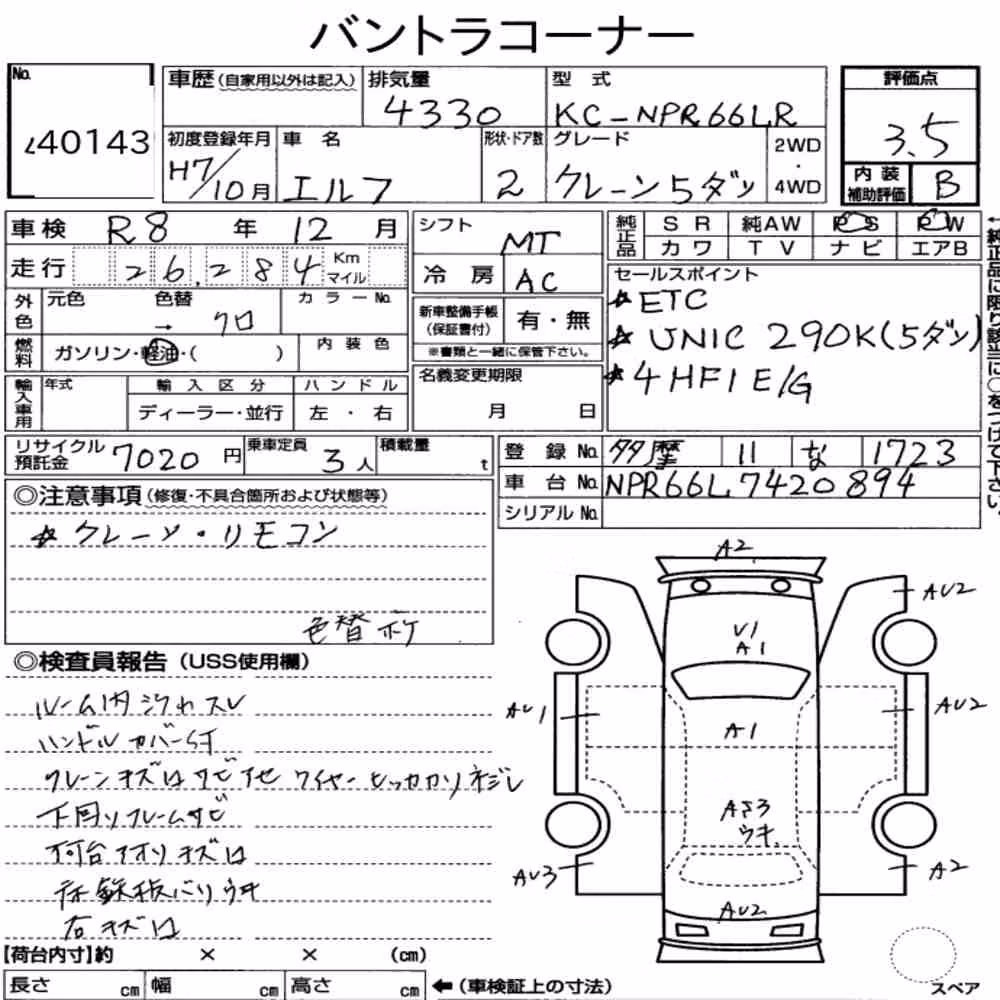 バントラコーナー
No. 40143
車歴 (自家用以外は記入) 排気量 4330 型式 KC-NPR66LR 評価点 3.5
初度登録年月 H7/10月 車名 エルフ 形状・ドア数 2 グレード クレーン5ダン 2WD・4WD 内装補助評価 B
車検 R8年 12月 シフト MT 純正品 SR 純AW PS PW
走行 26,284 Km マイル 冷房 AC カワ TV ナビ エアB
←純正品に限り該当に○をつけて下さい。
外色 元色 色替 → クロ カラーNo.
燃料 ガソリン・軽油・( ) 内装色
新車整備手帳(保証書付) 有・無
※書類と一緒に保管下さい。
セールスポイント
☆ETC
☆UNIC 290K(5ダン)
☆4HF1 E/G
輸入車用 年式 輸入区分 ハンドル
ディーラー・並行 左・右
名義変更期限 月 日
リサイクル預託金 7020円 乗車定員 3人 積載量 t
登録No. 多摩 11 な 1723
車台No. NPR66L 7420894
シリアルNo.
◎注意事項(修復・不具合箇所および状態等)
☆クレーン・リモコン
色替ネケ
◎検査員報告(USS使用欄)
ルーム内 ヨゴレ スレ
ハンドルカバー付
クレーン キズ凹 サビ アセ ワイヤー ヒッカカリ ネジレ
下回り フレームサビ
荷台アオリ キズ凹
床鉄板バリ ウキ
右キズ凹
A2
AU2
V1
A1
AU1
AU2
A1
AS3
ウキ
AU3
A2
AU2
【荷台内寸】約 × × (cm)
長さ cm 幅 cm 高さ cm ←(車検証上の寸法)
スペア